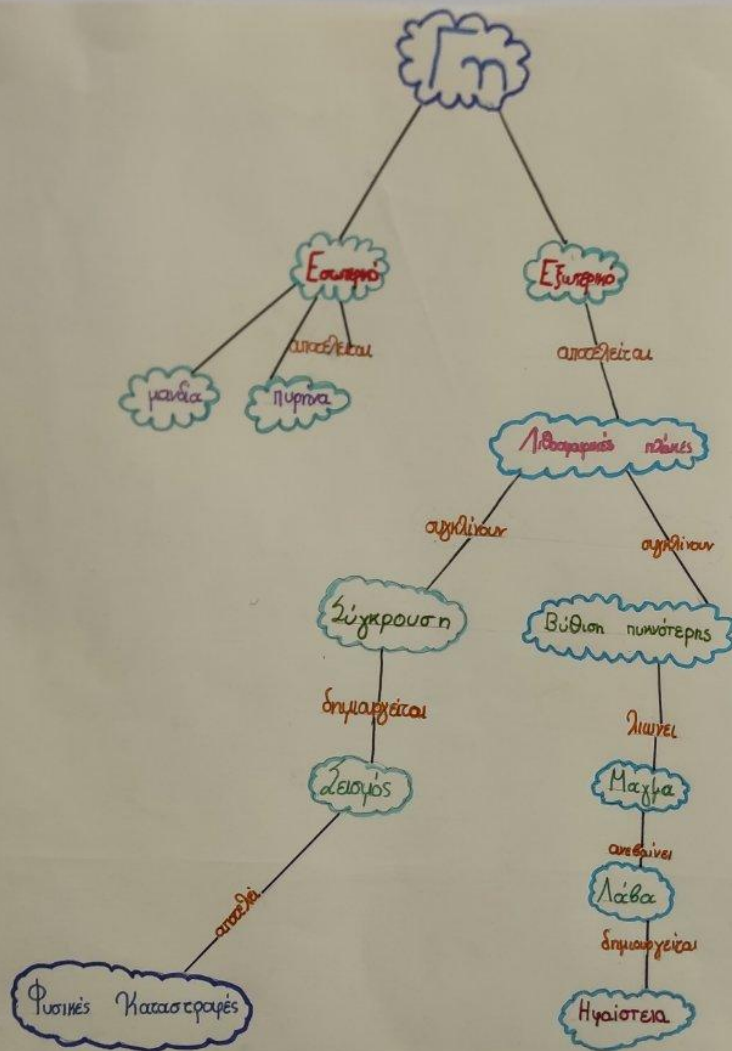 Γη
Εσωτερικό
Εξωτερικό
αποτελείται
αποτελείται
μανδία
πυρήνα
Λιθοσφαιρικές πλάκες
συγκλίνουν
συγκλίνουν
Σύγκρουση
Βύθιση πυκνότερης
δημιουργείται
λιωνει
Σεισμός
Μαγμα
ανεβαίνει
Λάβα
αποτελεί
δημιουργείται
Φυσικές Καταστροφές
Ηφαίστεια